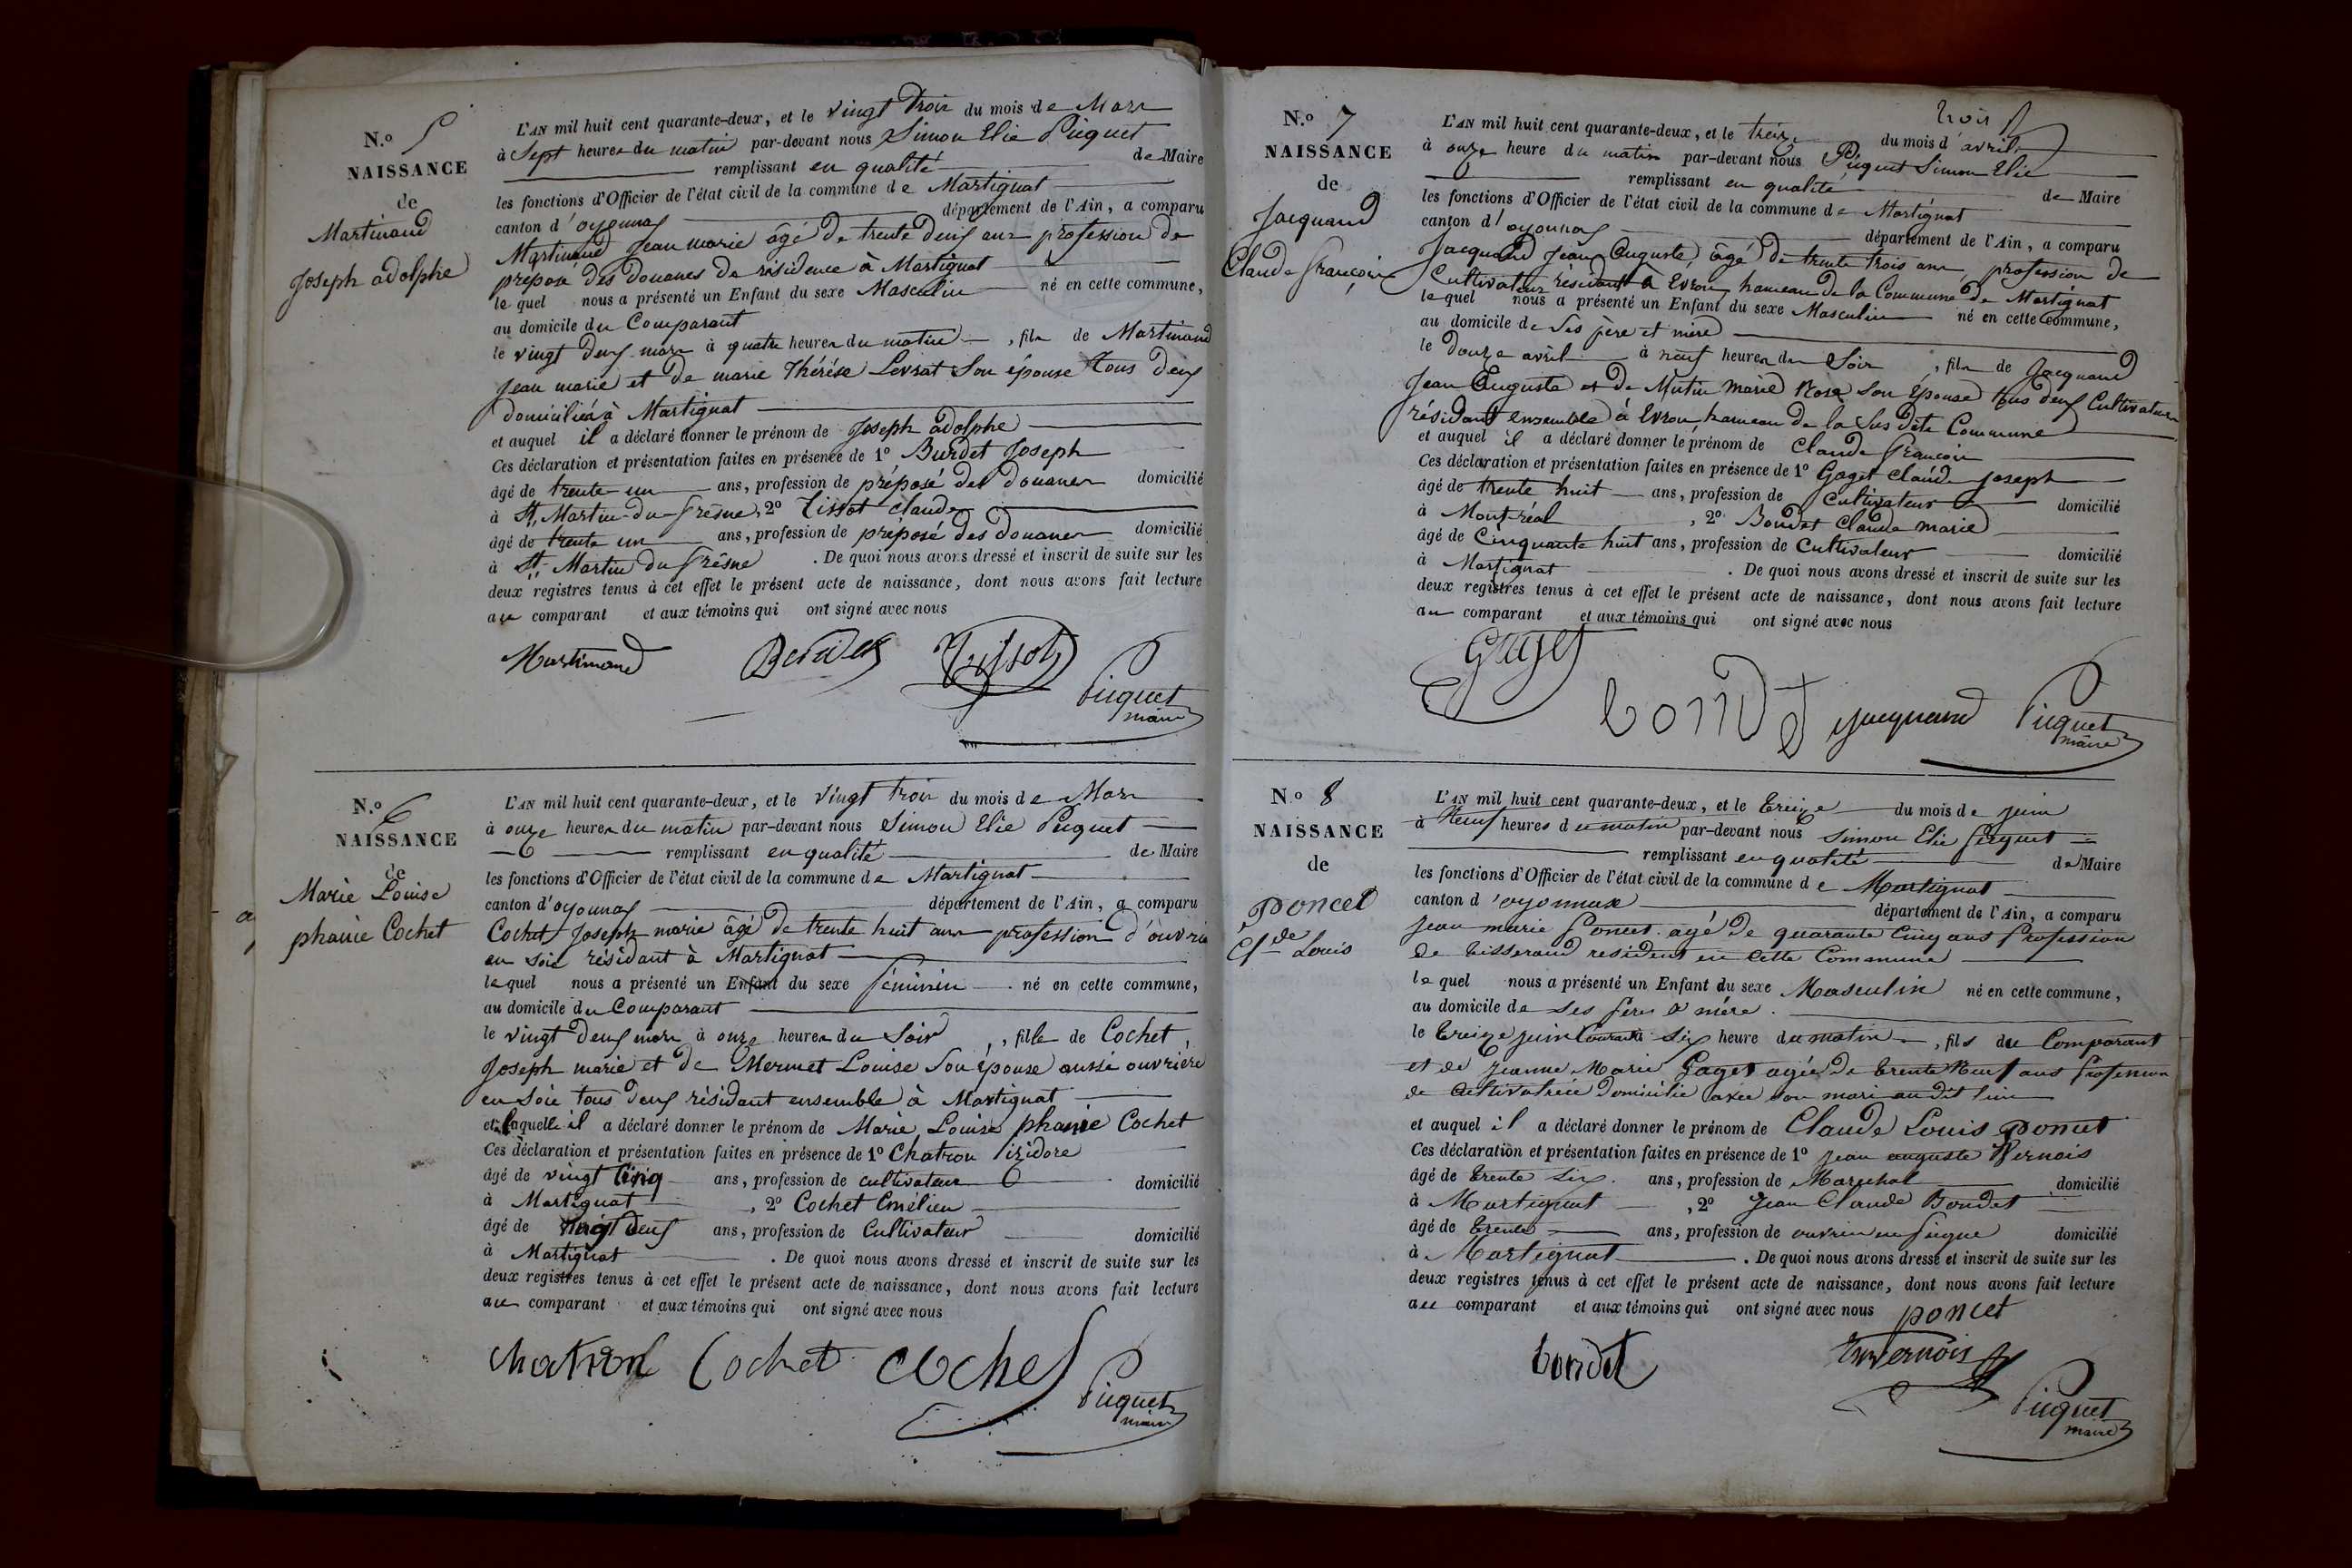 N.º 5
NAISSANCE
de
Martinand
Joseph adolphe
L'AN mil huit cent quarante-deux, et le vingt trois du mois de Mars
à Sept heures du matin par-devant nous Simon Elie Piquet
remplissant en qualité de Maire
les fonctions d'Officier de l'état civil de la commune de Martignat
canton d'oyonnax département de l'Ain, a comparu
Martinand Jean marie âgé de trente deux ans profession de
préposé des Douanes de résidence à Martignat
lequel nous a présenté un Enfant du sexe Masculin né en cette commune,
au domicile du Comparant
le vingt deux mars à quatre heures du matin, fils de Martinand
Jean marie et de marie Thérése Levrat Son épouse tous deux
domiciliés à Martignat
et auquel il a déclaré donner le prénom de Joseph adolphe
Ces déclaration et présentation faites en présence de 1º Burdet Joseph
âgé de trente-un ans, profession de préposé des douanes domicilié
à St. Martin-du-frêsne, 2º Tissot Claude
âgé de trente un ans, profession de préposé des douanes domicilié
à St. Martin du frêsne. De quoi nous avons dressé et inscrit de suite sur les
deux registres tenus à cet effet le présent acte de naissance, dont nous avons fait lecture
au comparant et aux témoins qui ont signé avec nous
Martinand Burdet Tissot Piquet
maire
N.º 6
NAISSANCE
de
Marie Louise
phanie Cochet
L'AN mil huit cent quarante-deux, et le vingt trois du mois de Mars
à onze heures du matin par-devant nous Simon Elie Piquet
remplissant en qualité de Maire
les fonctions d'Officier de l'état civil de la commune de Martignat
canton d'oyonnax département de l'Ain, a comparu
Cochet Joseph marie âgé de trente huit ans profession d'ouvrier
en soie résidant à Martignat
lequel nous a présenté un Enfant du sexe féminin né en cette commune,
au domicile du Comparant
le vingt deux mars à onze heures du Soir, fille de Cochet
Joseph marie et de Mermet Louise Son épouse aussi ouvrière
en Soie tous deux résidant ensemble à Martignat
et laquelle il a déclaré donner le prénom de Marie Louise phanie Cochet
Ces déclaration et présentation faites en présence de 1º Chatron izidore
âgé de vingt cinq ans, profession de cultivateur domicilié
à Martignat, 2º Cochet Emélien
âgé de vingt deux ans, profession de Cultivateur domicilié
à Martignat. De quoi nous avons dressé et inscrit de suite sur les
deux registres tenus à cet effet le présent acte de naissance, dont nous avons fait lecture
au comparant et aux témoins qui ont signé avec nous
Chatron Cochet Cochet Piquet
maire
trois
N.º 7
NAISSANCE
de
Jacquand
Claude françois
L'AN mil huit cent quarante-deux, et le treize du mois d'avril
à onze heure du matin par-devant nous Piquet Simon Elie
remplissant en qualité de Maire
les fonctions d'Officier de l'état civil de la commune de Martignat
canton d'oyonnax département de l'Ain, a comparu
Jacquand Jean Auguste, âgé de trente trois ans, profession de
Cultivateur résidant à Evron hameau de la Commune de Martignat
lequel nous a présenté un Enfant du sexe Masculin né en cette commune,
au domicile de Ses père et mère
le douze avril à neuf heures du Soir, fils de Jacquand
Jean Auguste et de Mutin Marie Rose son épouse tous deux Cultivateurs
résidant ensemble à Evron hameau de la Sus dite Commune
et auquel il a déclaré donner le prénom de Claude françois
Ces déclaration et présentation faites en présence de 1º Gaget Claude Joseph
âgé de trente huit ans, profession de Cultivateur domicilié
à Mont-réal, 2º Bondet Claude marie
âgé de Cinquante huit ans, profession de Cultivateur domicilié
à Martignat. De quoi nous avons dressé et inscrit de suite sur les
deux registres tenus à cet effet le présent acte de naissance, dont nous avons fait lecture
au comparant et aux témoins qui ont signé avec nous
Gaget
bondet Jacquand Piquet
maire
N.º 8
NAISSANCE
de
poncet
Cl^de Louis
L'AN mil huit cent quarante-deux, et le treize du mois de juin
à Neuf heures du matin par-devant nous Simon Elie Piquet
remplissant en qualité de Maire
les fonctions d'Officier de l'état civil de la commune de Martignat
canton d'oyonnax département de l'Ain, a comparu
Jean marie Poncet agé de quarante Cinq ans Profession
de tisserand resident en Cette Commune
lequel nous a présenté un Enfant du sexe Masculin né en cette commune,
au domicile de ses pere & mére
le treize juin Courant à Six heure du matin, fils du Comparant
et de Jeanne Marie Gaget agée de trente Neuf ans Profession
de cultivatrice Domicilie avec son mari au dit lieu
et auquel il a déclaré donner le prénom de Claude Louis poncet
Ces déclaration et présentation faites en présence de 1º Jean auguste Vernois
âgé de trente Six ans, profession de Marechal domicilié
à Martignat, 2º Jean Claude Bondet
âgé de trente ans, profession de ouvrier en peigne domicilié
à Martignat. De quoi nous avons dressé et inscrit de suite sur les
deux registres tenus à cet effet le présent acte de naissance, dont nous avons fait lecture
au comparant et aux témoins qui ont signé avec nous poncet
bondet Vernois
Piquet
maire